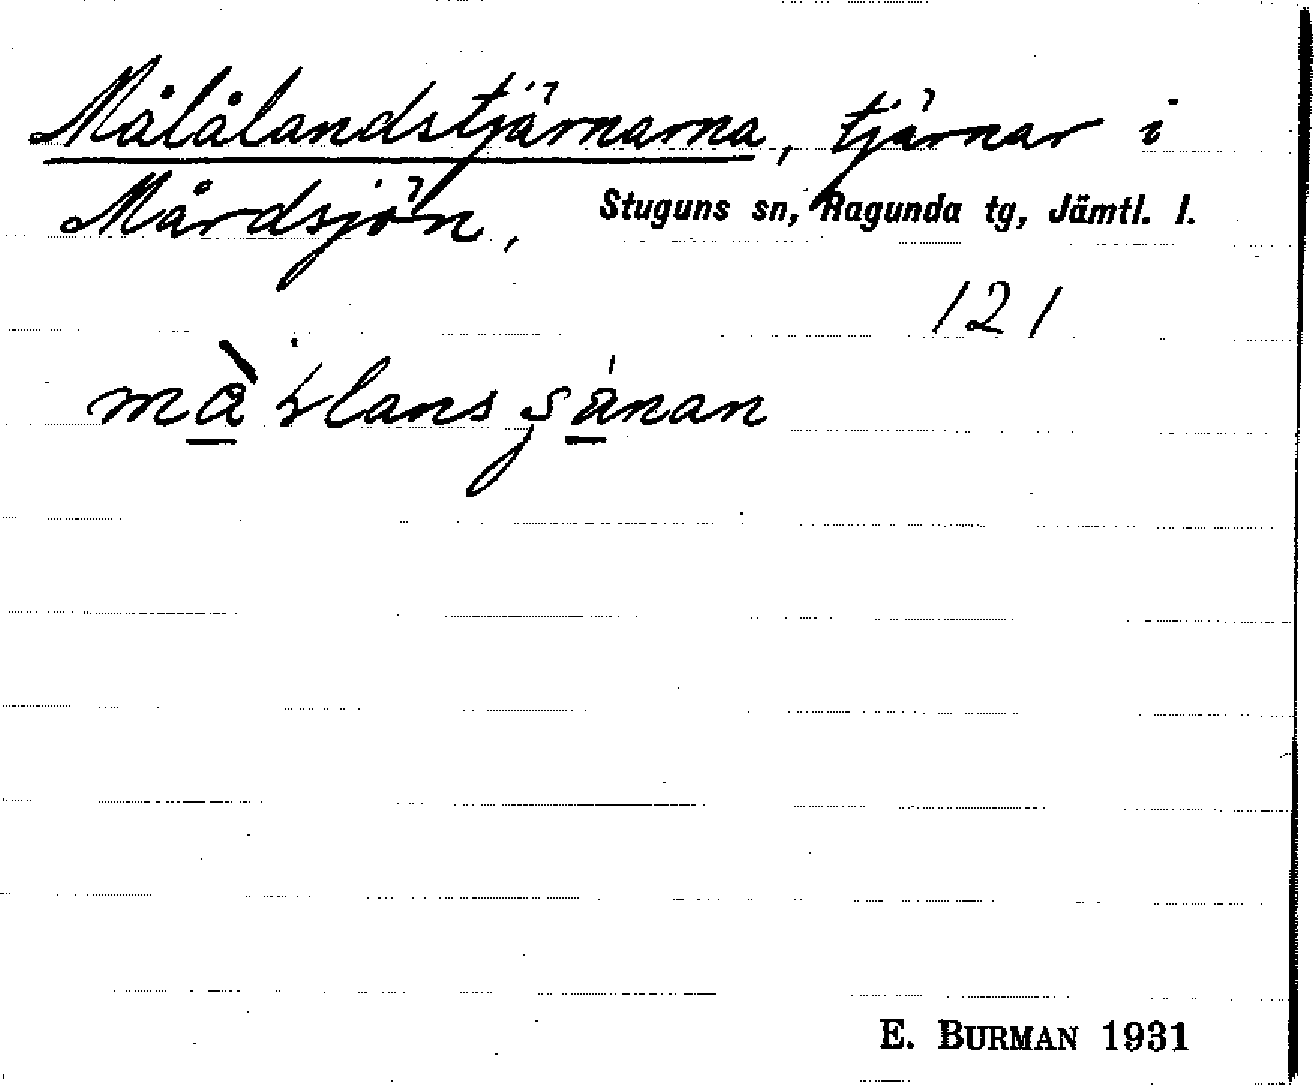 Målålandstjärnarna, tjärnar i
Mårdsjön, Stuguns sn, Ragunda tg, Jämtl. l.
121
E. BURMAN 1931